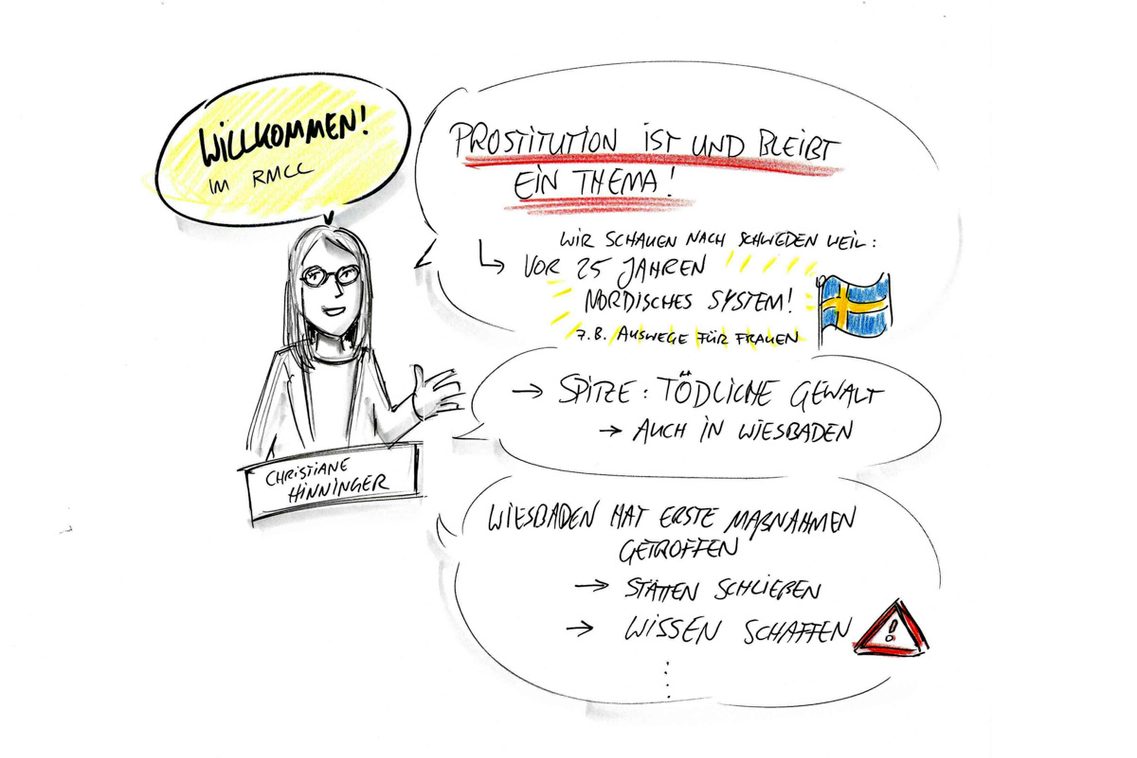 WILLKOMMEN!
IM RMCC
PROSTITUTION IST UND BLEIBT
EIN THEMA!
WIR SCHAUEN NACH SCHWEDEN WEIL:
VOR 25 JAHREN
NORDISCHES SYSTEM!
Z.B. AUSWEGE FÜR FRAUEN
→ SPITZE: TÖDLICHE GEWALT
→ AUCH IN WIESBADEN
CHRISTIANE
HINNINGER
WIESBADEN HAT ERSTE MAßNAHMEN
GETROFFEN
→ STÄTTEN SCHLIEßEN
→ WISSEN SCHAFFEN
!